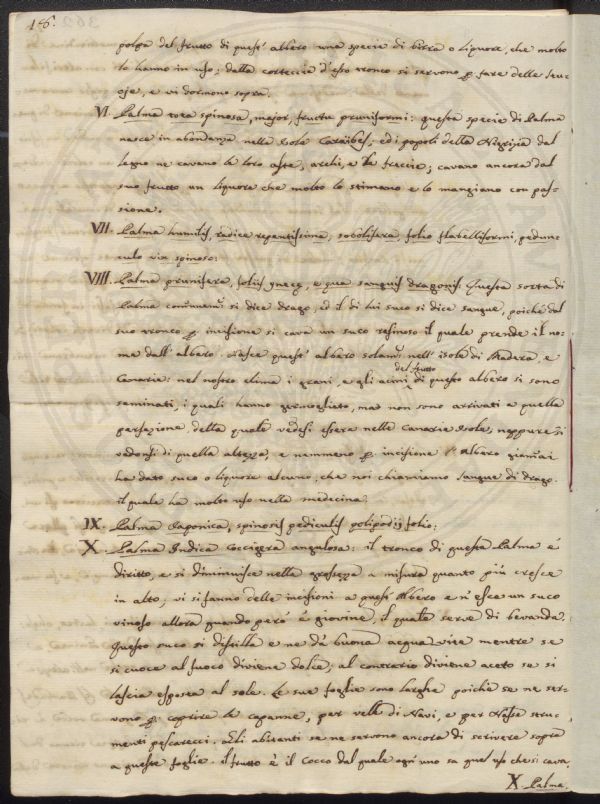 186.
polpa del frutto di quest' albero una specie di birra o liquore, che molto
lo hanno in uso; della corteccia d'esso tronco si servono p. fare delle stuo-
je, e vi dormono sopra.
VI. Palma tota spinosa, major, fructu pruniformi: questa specie di Palma
nasce in abondanza nelle Isole Caraibes; ed i popoli della Nigrizia dal
legno ne cavano le loro aste, archi, e le freccie; cavano ancora dal
suo frutto un liquore che molto lo stimano e lo mangiano con pas-
sione.
VII. Palma humilis, radice repentissima, sobolifera, folio flabelliformi, pedun-
culo vix spinoso:
VIII. Palma prunifera, foliis yuccę, e qua sanguis draconis. Questa sorta di
Palma comunemte. si dice drago, ed il di lui suco si dice sangue, poiché dal
suo tronco p. incisione si cava un suco resinoso il quale prende il no-
me dall' albero. Nasce quest' albero solamte. nell' isole di Madera, e
Canarie: nel nostro clima i grani, e gli acini del frutto di questo albero si sono
seminati, i quali hanno germogliato, ma non sono arrivati a quella
perfezione della quale vedesi essere nelle Canarie Isole; neppure si
vedonsi di quella altezza, e nemmeno p. incisione l' Albero giammai
ha dato suco o liquore alcuno, che noi chiamiamo sangue di drago
il quale ha molto uso nella medecina;
IX. Palma Japonica, spinosis pediculis polipodij folio:
X. Palma Indica coccigera angulosa: il tronco di questa Palma é
diritto, e si diminuisce nella grossezza a misura quanto più cresce
in alto; vi si fanno delle incisioni a quest' Albero e n' esce un suco
vinoso allora quando peró é giovine, il quale serve di bevanda.
Questo suco si distilla e ne dá buona acqua vite mentre se
si cuoce al fuoco diviene dolce; al contrario diviene aceto se si
lascia esposta al sole. Le sue foglie sono larghe poichè se ne ser-
vono p. coprire le capanne, per vele di Navi, e per Nasse stru-
menti pescarecci. Gli abitanti se ne servono ancora di scrivere sopra
a queste foglie. Il frutto è il Cocco dal quale ogn' uno sa quel uso che si cava.
X. Palma.